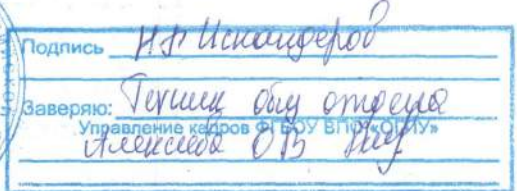 Подпись Н.Г. Искандеров
Заверяю: Техник общ отдела
Управление кадров ФГБОУ ВПО «ОГМУ»
Алексеева ОВ